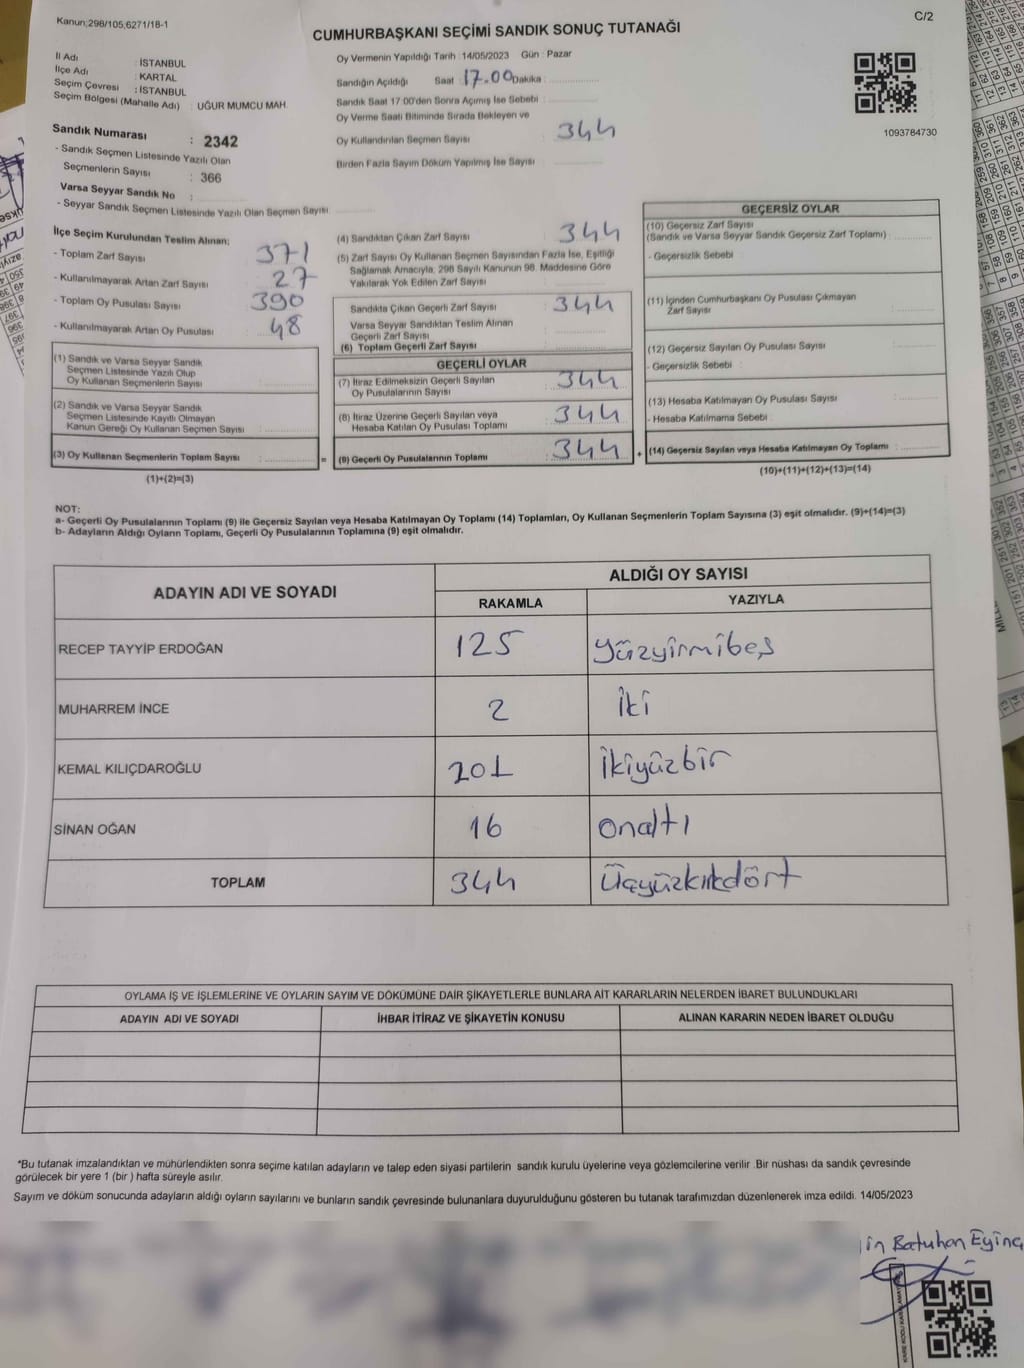 Kanun;298/105,6271/18-1
C/2
CUMHURBAŞKANI SEÇİMİ SANDIK SONUÇ TUTANAĞI
İl Adı : İSTANBUL
İlçe Adı : KARTAL
Seçim Çevresi : İSTANBUL
Seçim Bölgesi (Mahalle Adı) : UĞUR MUMCU MAH.
Sandık Numarası : 2342
- Sandık Seçmen Listesinde Yazılı Olan
Seçmenlerin Sayısı : 366
Varsa Seyyar Sandık No :
- Seyyar Sandık Seçmen Listesinde Yazılı Olan Seçmen Sayısı
Oy Vermenin Yapıldığı Tarih :14/05/2023 Gün : Pazar
Sandığın Açıldığı Saat : 17.00 Dakika :
Sandık Saat 17:00'den Sonra Açımış İse Sebebi :
Oy Verme Saati Bitiminde Sırada Bekleyen ve
Oy Kullandırılan Seçmen Sayısı : 344
Birden Fazla Sayım Döküm Yapılmış İse Sayısı :
1093784730
İlçe Seçim Kurulundan Teslim Alınan;
- Toplam Zarf Sayısı : 371
- Kullanılmayarak Artan Zarf Sayısı : 27
- Toplam Oy Pusulası Sayısı : 390
- Kullanılmayarak Artan Oy Pusulası : 48
(1) Sandık ve Varsa Seyyar Sandık
Seçmen Listesinde Yazılı Olup
Oy Kullanan Seçmenlerin Sayısı :
(2) Sandık ve Varsa Seyyar Sandık
Seçmen Listesinde Kayıtlı Olmayan
Kanun Gereği Oy Kullanan Seçmen Sayısı :
(3) Oy Kullanan Seçmenlerin Toplam Sayısı : =
(1)+(2)=(3)
(4) Sandıktan Çıkan Zarf Sayısı : 344
(5) Zarf Sayısı Oy Kullanan Seçmen Sayısından Fazla İse, Eşitliği
Sağlamak Amacıyla, 298 Sayılı Kanunun 98. Maddesine Göre
Yakılarak Yok Edilen Zarf Sayısı :
Sandıkta Çıkan Geçerli Zarf Sayısı : 344
Varsa Seyyar Sandıktan Teslim Alınan
Geçerli Zarf Sayısı :
(6) Toplam Geçerli Zarf Sayısı :
GEÇERLİ OYLAR
(7) İtiraz Edilmeksizin Geçerli Sayılan
Oy Pusulalarının Sayısı : 344
(8) İtiraz Üzerine Geçerli Sayılan veya
Hesaba Katılan Oy Pusulası Toplamı : 344
(9) Geçerli Oy Pusulalarının Toplamı : 344 +
GEÇERSİZ OYLAR
(10) Geçersiz Zarf Sayısı
(Sandık ve Varsa Seyyar Sandık Geçersiz Zarf Toplamı) :
- Geçersizlik Sebebi :
(11) İçinden Cumhurbaşkanı Oy Pusulası Çıkmayan
Zarf Sayısı :
(12) Geçersiz Sayılan Oy Pusulası Sayısı :
- Geçersizlik Sebebi :
(13) Hesaba Katılmayan Oy Pusulası Sayısı :
- Hesaba Katılmama Sebebi :
(14) Geçersiz Sayılan veya Hesaba Katılmayan Oy Toplamı :
(10)+(11)+(12)+(13)=(14)
NOT:
a- Geçerli Oy Pusulalarının Toplamı (9) ile Geçersiz Sayılan veya Hesaba Katılmayan Oy Toplamı (14) Toplamları, Oy Kullanan Seçmenlerin Toplam Sayısına (3) eşit olmalıdır. (9)+(14)=(3)
b- Adayların Aldığı Oyların Toplamı, Geçerli Oy Pusulalarının Toplamına (9) eşit olmalıdır.
ADAYIN ADI VE SOYADI
ALDIĞI OY SAYISI
RAKAMLA YAZIYLA
RECEP TAYYİP ERDOĞAN 125 yüzyirmibeş
MUHARREM İNCE 2 iki
KEMAL KILIÇDAROĞLU 201 ikiyüzbir
SİNAN OĞAN 16 onaltı
TOPLAM 344 Üçyüzkırkdört
OYLAMA İŞ VE İŞLEMLERİNE VE OYLARIN SAYIM VE DÖKÜMÜNE DAİR ŞİKAYETLERLE BUNLARA AİT KARARLARIN NELERDEN İBARET BULUNDUKLARI
ADAYIN ADI VE SOYADI İHBAR İTİRAZ VE ŞİKAYETİN KONUSU ALINAN KARARIN NEDEN İBARET OLDUĞU
*Bu tutanak imzalandıktan ve mühürlendikten sonra seçime katılan adayların ve talep eden siyasi partilerin sandık kurulu üyelerine veya gözlemcilerine verilir .Bir nüshası da sandık çevresinde
görülecek bir yere 1 (bir ) hafta süreyle asılır.
Sayım ve döküm sonucunda adayların aldığı oyların sayılarını ve bunların sandık çevresinde bulunanlara duyurulduğunu gösteren bu tutanak tarafımızdan düzenlenerek imza edildi. 14/05/2023
Batuhan